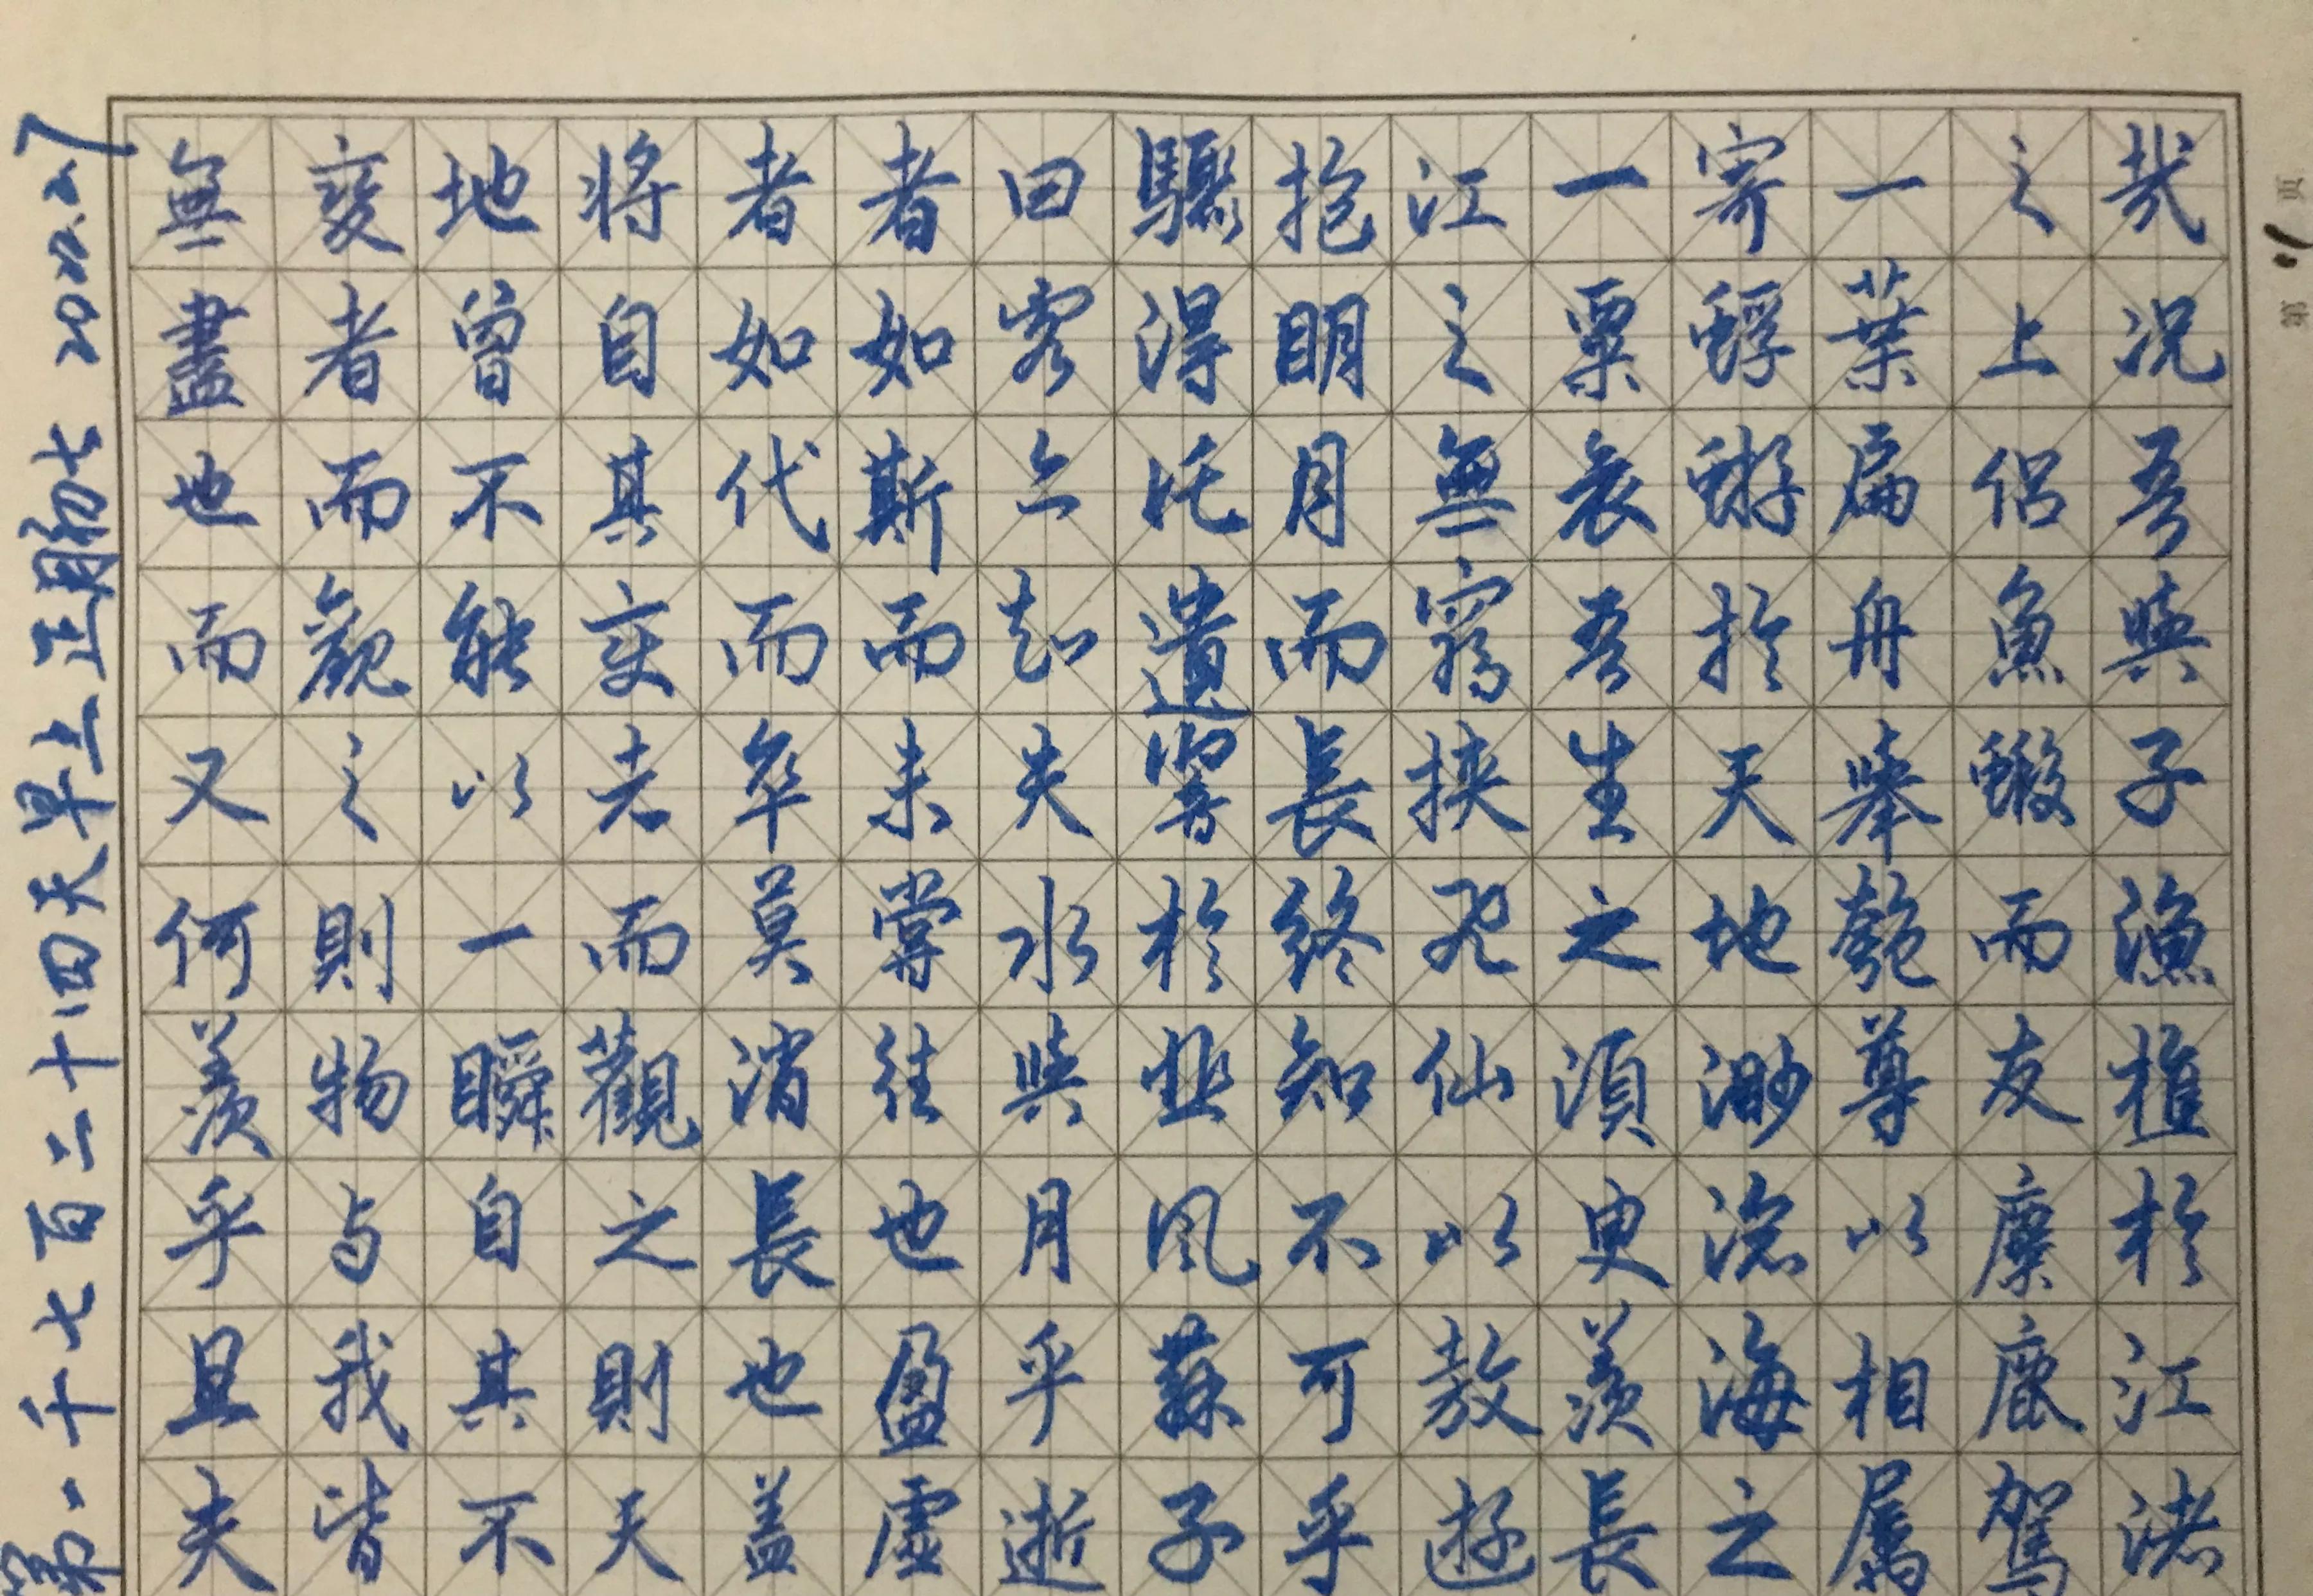 哉況吾與子漁樵於江渚
之上侶魚蝦而友麋鹿駕
一葉扁舟舉匏尊以相屬
寄蜉蝣於天地渺滄海之
一粟哀吾生之須更羨長
江之無窮挾飛仙以敖遊
抱明月而長終知不可乎
驟得托遺響於悲風蘇子
曰客亦知夫水與月乎逝
者如斯而未嘗往也盈虛
者如代而卒莫消長也盖
将自其变者而觀之則天
地曾不能以一瞬自其不
變者而觀之則物与我皆
無盡也而又何羨乎且夫
第一千七百二十四天早上正月初七 2022.2.7
页 11 第